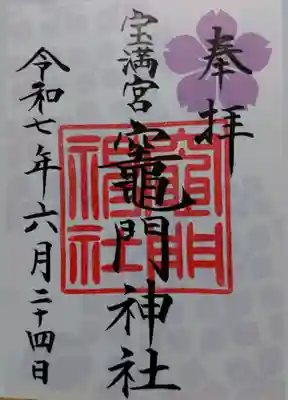 奉拝
宝満宮
竈門神社
竈門
神社
令和七年六月二十四日